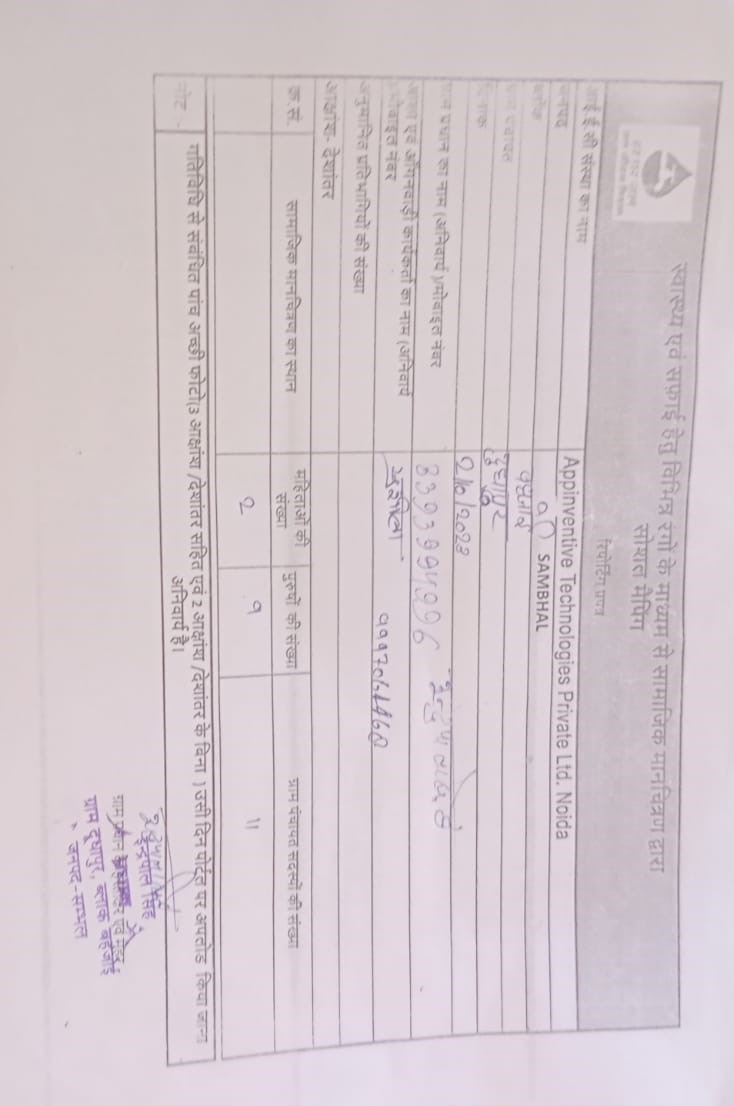 स्वास्थ्य एवं सफाई हेतु विभिन्न रंगों के माध्यम से सामाजिक मानचित्रण द्वारा
सोशल मैपिंग
रिपोर्टिंग प्रपत्र
आई ई सी संस्था का नाम Appinventive Technologies Private Ltd. Noida
जनपद SAMBHAL
ब्लॉक
ग्राम पंचायत दुधापुर
दिनांक 2/10/2023
ग्राम प्रधान का नाम (अनिवार्य )/मोबाइल नंबर
आशा एवं आँगनवाड़ी कार्यकर्ता का नाम (अनिवार्य
)मोबाइल नंबर
अनुमानित प्रतिभागियों की संख्या
आक्षांश- देशांतर
क्र.सं. सामाजिक मानचित्रण का स्थान महिलाओं की संख्या पुरुषों की संख्या ग्राम पंचायत सदस्यों की संख्या
2 9 11
नोट :- गतिविधि से संबंधित पांच अच्छी फोटो(3 आक्षांश /देशांतर सहित एवं 2 आक्षांश /देशांतर के बिना ) उसी दिन पोर्टल पर अपलोड किया जाना
अनिवार्य है।
इन्द्रपाल सिंह
ग्राम प्रधान एवं मुहर
ग्राम दुधापुर, ब्लाक बहजोई
जनपद-सम्भल